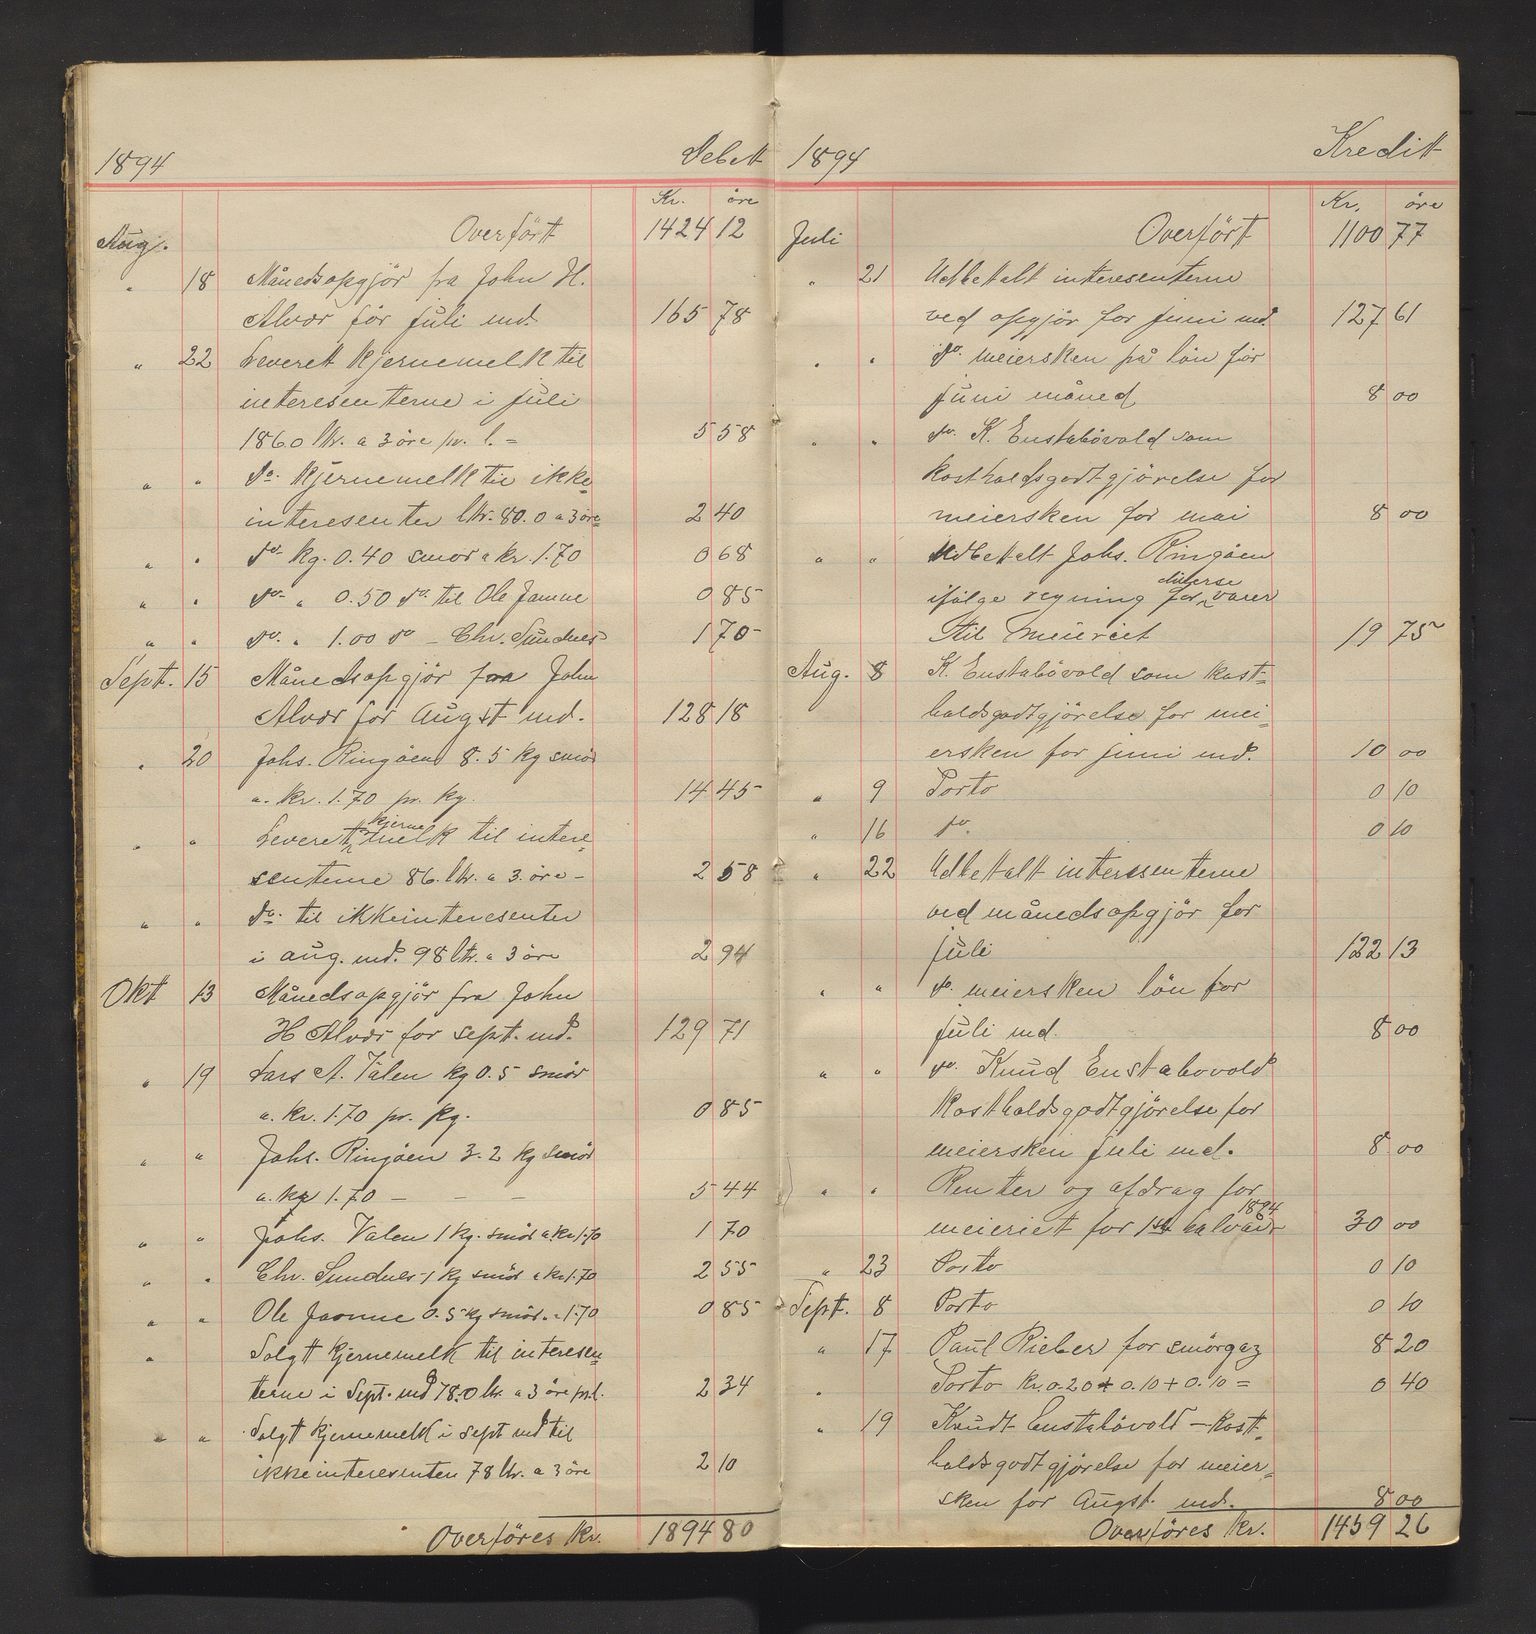 1894 Debett
Kr. öre
Aug. Overfört 1424 12
" 18 Månedsopgjör fra John H.
Alvær för Juli md. 165 78
" 22 Leveret kjernemelk til
interesenterne i Juli
1860 ltr. a 3 öre pr. l. = 5 58
" " Do. kjernemelk til ikke=
interesenter ltr. 80.0 a 3 öre 2 40
" " do kg. 0.40 smör a kr. 1.70 0 68
" " do. " 0.50 do. til Ole Jamne 0 85
" " do. " 1.00 do – Chr. Sundnes 1 70
Sept. 15 Månedsopgjör fra John
Alvær for Augst md. 128 18
" 20 Johs. Ringöen 8.5 kg smör
a. kr. 1.70 pr. kg. 14 45
" " Leveret kjerne melk til intere=
senterne 86. ltr. a 3. öre – 2 58
" " Do. til ikkeinteresenter
i aug. md. 98 ltr. a 3 öre 2 94
Okt 13 Månedsopgjör fra John
H Alvær for sept. md. 129 71
" 19 Lars A. Valen kg 0.5 smör
a. kr. 1.70 pr. kg. 0 85
" " Johs. Ringöen 3.2 kg smör
a. kr 1.70 – – – 5 44
" " Johs. Valen 1 kg. smör a. kr 1.70 1 70
" " Chr. Sundnes – 1 kg smör a kr 1.70 2 55
" " Ole Jamne 0.5 kg smör. a 1.70 0 85
" Solgt kjernemelk til interesen=
terne i Sept. md 78.0 ltr a 3 öre pr. l. 2 34
" " Solgt kjernemelk i sept md til
ikkeinteresenter 78 ltr. a 3 öre 2 10
Overföres Kr. 1894 80
1894 Kreditt
Kr. öre
Juli Overfört 1100 77
" 21 Udbetalt interesenterne
ved opgjör for Juni md. 127 61
" " do. meiersken på lön för
Juni måned 8 00
" " do. K. Eustabövold som
kostholdsgodtgjörelse for
meiersken for mai 8 00
" " Udbetalt Johs. Ringöen
ifölge regning for diverse varer
til meieriet 19 75
Aug. 8 K. Eustabövold som kost=
holdsgodtgjörelse for mei=
ersken for juni md. 10 00
" 9 Porto 0 10
" 16 do. 0 10
" 22 Udbetalt interssenterne
ved månedsopgjör for
Juli 122 13
" " do. meiersken lön for
Juli md. 8 00
" " do. Knud Eustabovold
Kostholdsgodtgjörelse for
meiersken Juli md. 8 00
" " Renter og afdrag for
meieriet for 1ste halvår 1894 30 00
" 23 Porto 0 10
Sept. 8 Porto 0 10
" 17 Paul Rieber for smörgaz 8 20
" Porto kr. 0.20 + 0.10 + 0.10 = 0 40
" 19 Knudt Eustabövold – kost=
holdsgodtgjörelse for meier=
sken for Augst. md. 8 00
Overföres Kr. 1459 26